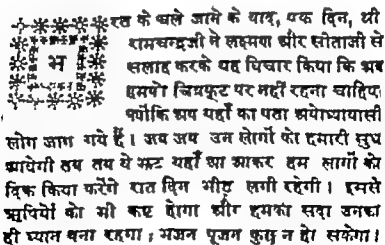 भरत के चले जाने के बाद, एक दिन, श्री
रामचन्द्रजी ने लक्ष्मण और सीताजी से
सलाह करके यह विचार किया कि अब
हमको चित्रकूट पर नहीं रहना चाहिए
क्योंकि अब यहाँ का पता अयोध्यावासी
लोग जान गये हैं। जब जब उन लोगों को हमारी सुध
आवेगी तब तब वे झट यहाँ आ आकर हम लोगों को
दिक किया करेंगे रात दिन भीड़ लगी रहेगी। इससे
ऋषियों को भी कष्ट होगा और हमको सदा उनका
ही ध्यान बना रहेगा; भजन पूजन कुछ न हो सकेगा।